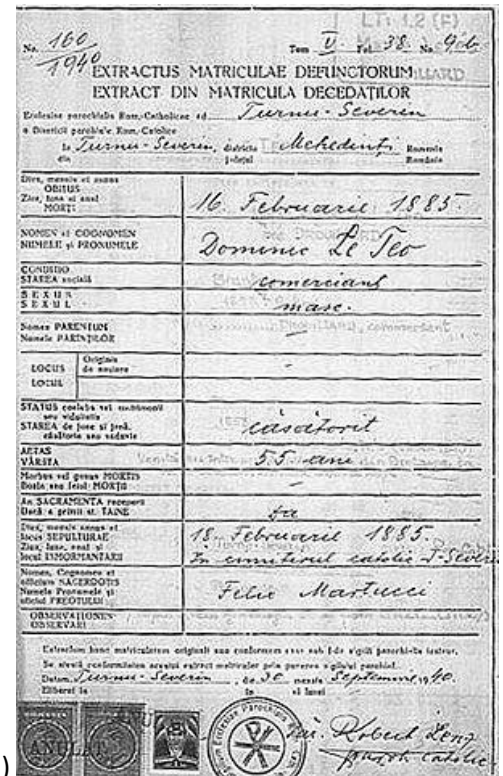 LTi 1.2 (F)
No. 160/1940 Tom V. Fol. 38. No. 906
EXTRACTUS MATRICULAE DEFUNCTORUM
EXTRACT DIN MATRICULA DECEDAȚILOR
Ecclesiae parochialis Rom.-Catholicae ad Turnu-Severin
a Bisericii parohiale Rom.-Catolice
la Turnu-Severin, districtu Mehedinți Romania
din județul România
Dies, mensis et annus
OBITUS
Ziua, luna și anul
MORȚI
16. Februarie 1885.
NOMEN et COGNOMEN
NUMELE și PRONUMELE
Dominic Le Teo
CONDITIO
STAREA socială
comerciant
SEXUS
SEXUL
masc.
Nomen PARENTUM
Numele PĂRINȚILOR
-
LOCUS Originis
LOCUL de naștere
-
STATUS coelebs vel matrimonii
seu viduitatis
STAREA de june și jună,
căsătorie sau văduvie
căsătorit
AETAS
VÂRSTA
55 ani
Morbus vel genus MORTIS
Boala sau felul MORȚII
-
An SACRAMENTA recepera
Dacă a primit st. TAINE
da
Dies, mensis annus et
locus SEPULTURAE
Ziua, luna, anul și
locul INMORMÂNTĂRII
18. Februarie 1885.
În cimitirul catolic T-Severin
Nomen, Cognomen et
officium SACERDOTIS
Numele Pronumele și
oficiul PREOTULUI
Felix Martucci
OBSERVATIONES
OBSERVĂRI
Se atestă conformitatea acestui extract matricular prin punerea sigiliului parohial.
Datum Turnu-Severin, die 30 mensis Septembrie 1940.
Eliberat la în al lunei
ANULAT
Robert Lenz
paroh catolic
)